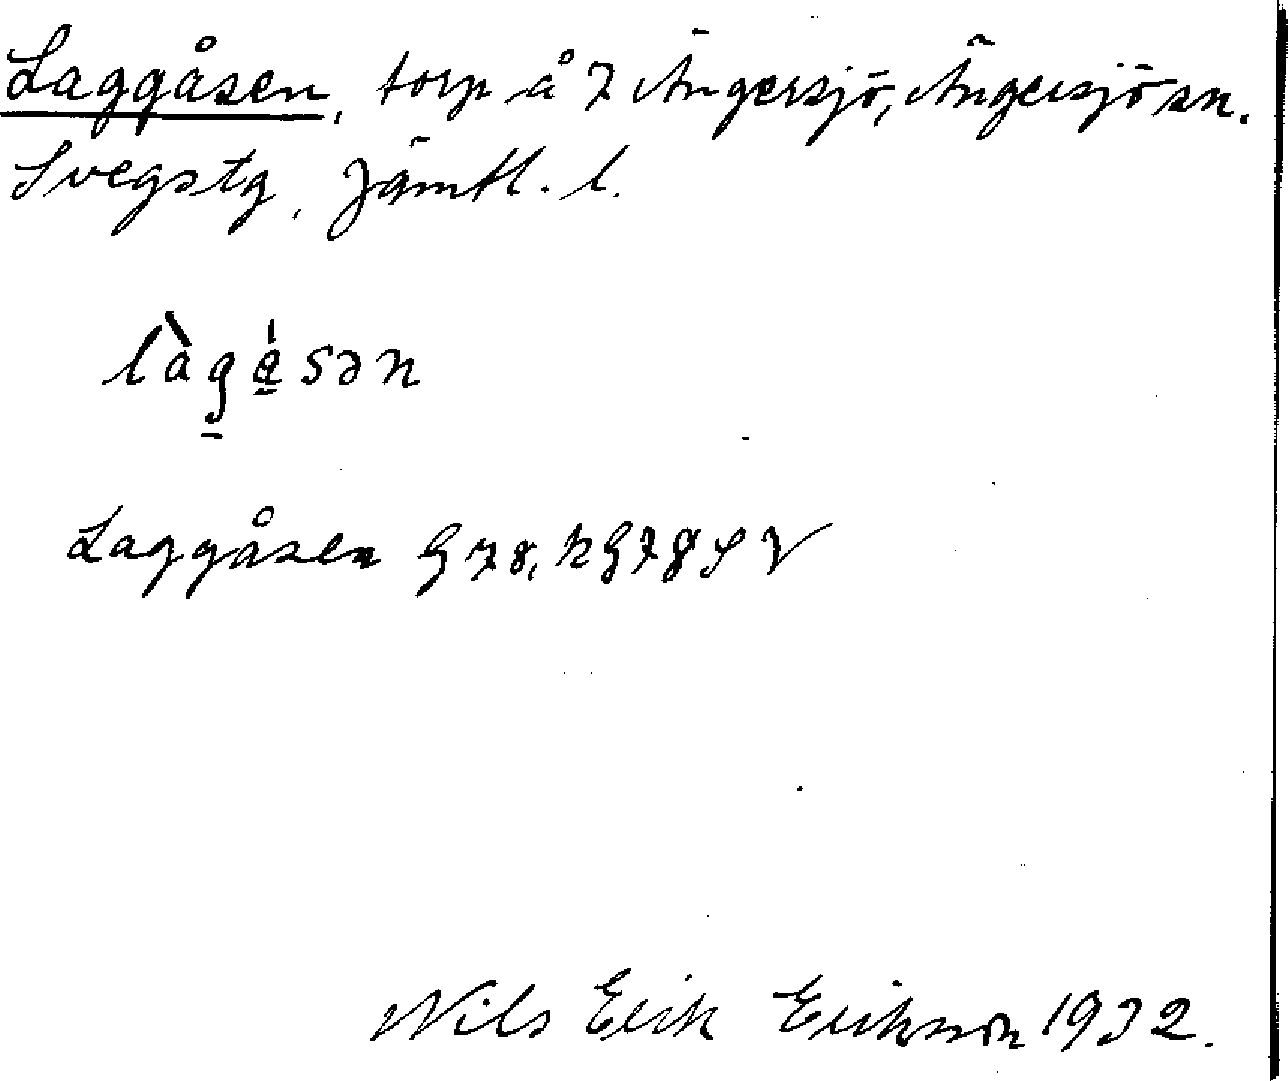 Laggåsen, torp å 7 Ängersjö, Ängersjö sn.
Svegs tg, Jämtl. l.
làgå̱sən
Laggåsen G 78, KG 78 S V
Nils Erik Erikson 1932.